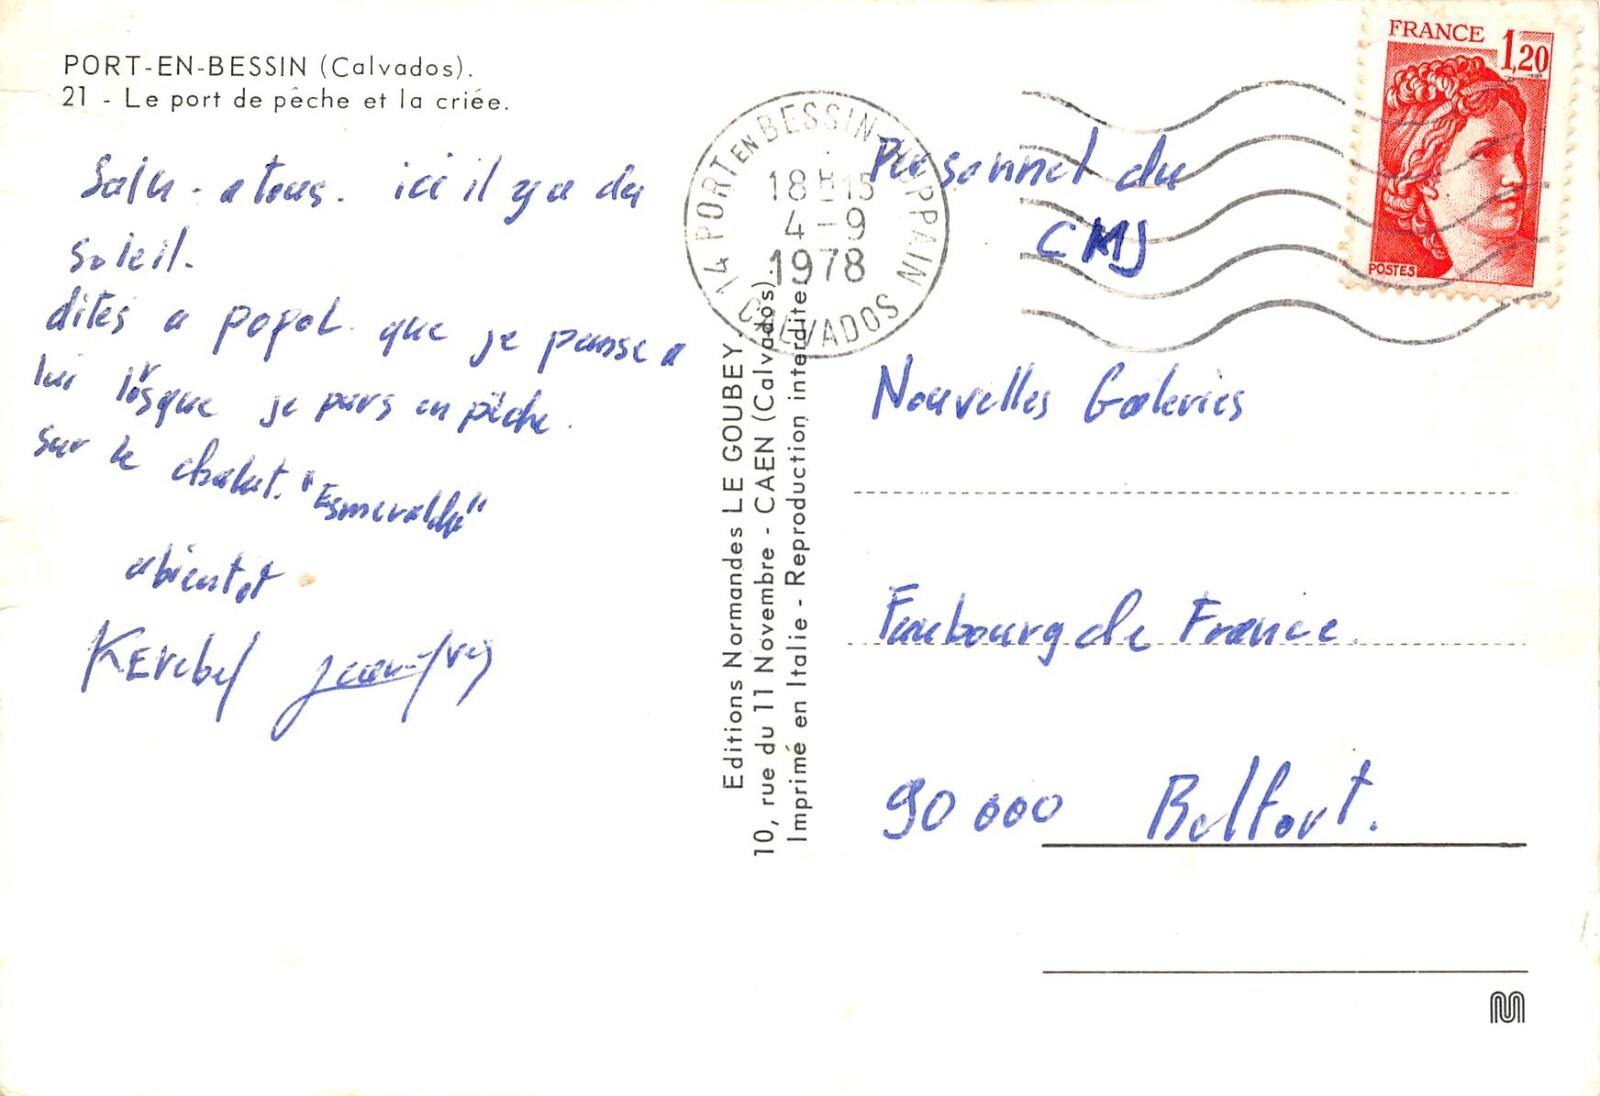 PORT-EN-BESSIN (Calvados).
21 - Le port de pêche et la criée.
Salu - a tous. ici il y a du
soleil.
dites a popol que je panse a
lui lorsque je pars en pêche.
sur le chalut. "Esmeralda"
abientot
KErebel jean-yves
Editions Normandes LE GOUBEY
10, rue du 11 Novembre - CAEN (Calvados).
Imprimé en Italie - Reproduction interdite
14 PORT EN BESSIN-HUPPAIN
18H15
4-9
1978
CALVADOS
FRANCE 1,20
POSTES
Personnel du
CMJ
Nouvelles Galeries
Faubourg de France.
90 000 Belfort.